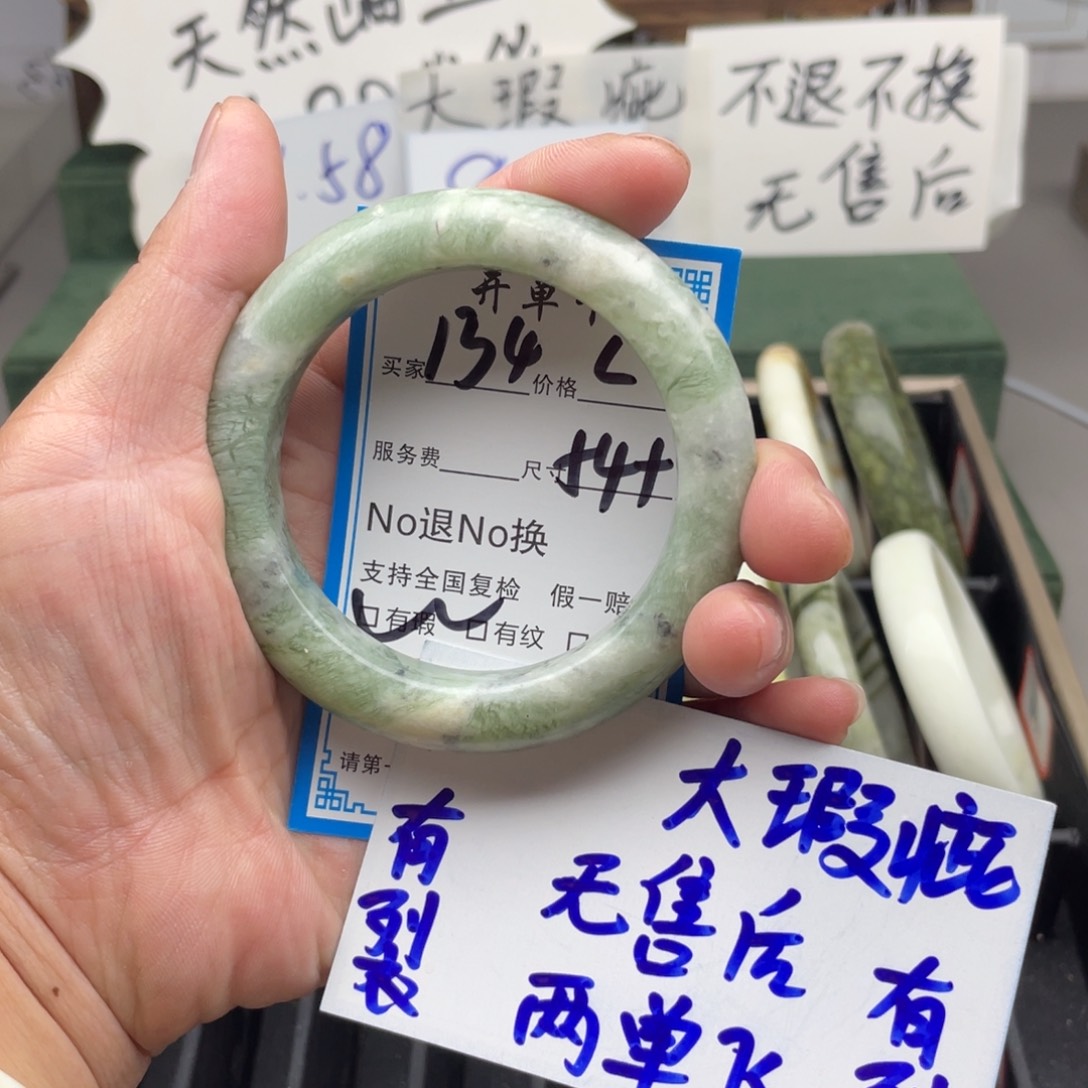 天然
.58
大瑕疵
不退不换
无售后
开单
买家 134 价格
服务费 尺寸 54+
No退No换
支持全国复检 假一赔
有瑕 有纹
请第
有裂
大瑕疵
无售后
两单
有